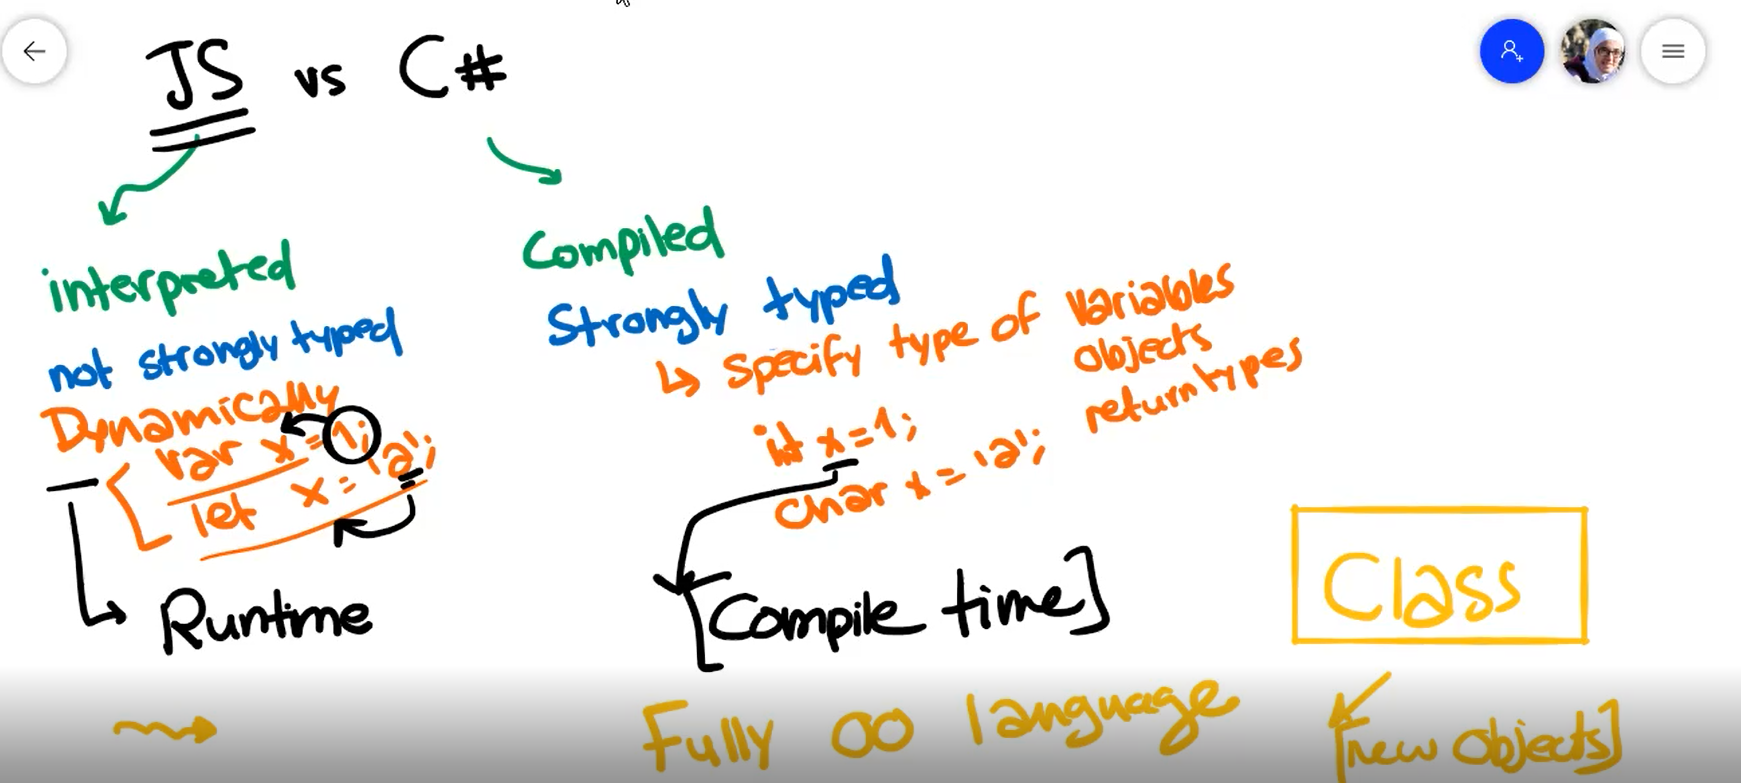 JS vs C#
interpreted
not strongly typed
Dynamically
var x = 1;
let x = 'a';
Runtime
Compiled
Strongly typed
↳ Specify type of variables
objects
return types
int x = 1;
char x = 'a';
[Compile time]
Class
Fully OO language
[new objects]